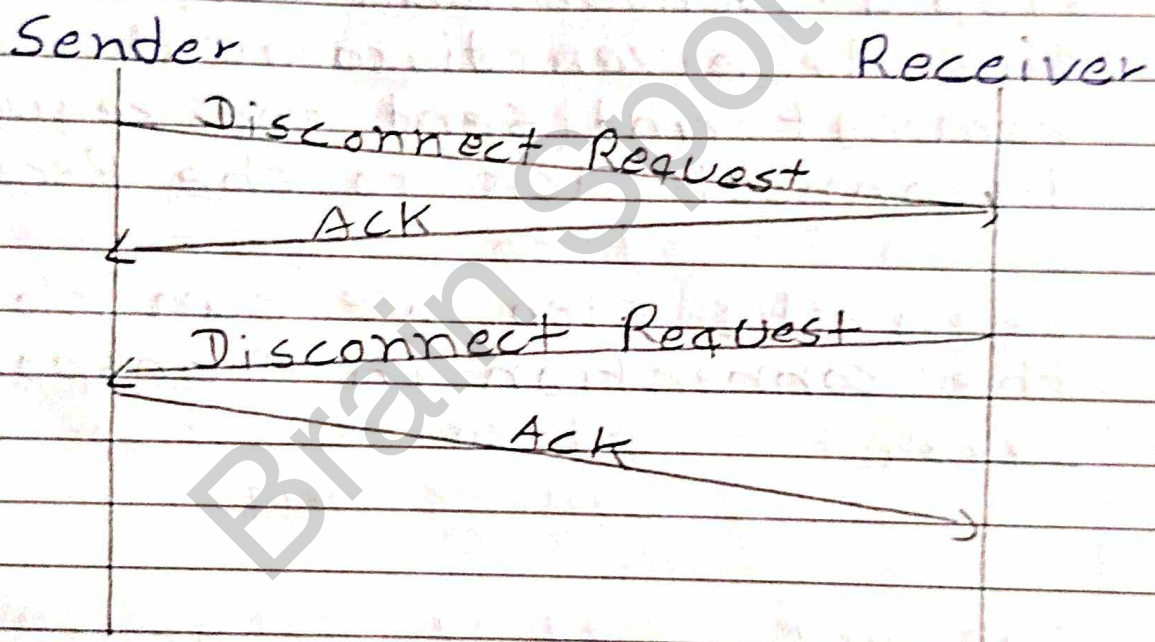 Sender Receiver
Disconnect Request
Ack
Disconnect Request
Ack
Brain Spot